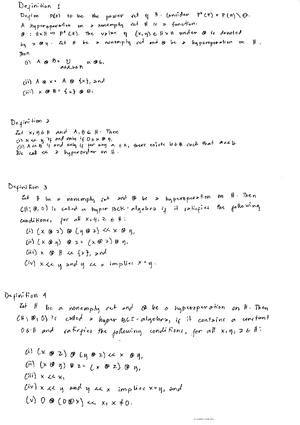 Definition 1
Define P(H) to be the power set of H. Consider P*(H) = P(H) \ ∅.
A hyperoperation on a nonempty set H is a function
⊛ : H×H → P*(H). The value of (x, y) ∈ H×H under ⊛ is denoted
by x ⊛ y. Let H be a nonempty set and ⊛ be a hyperoperation on H.
Then
(i) A ⊛ B = ∪ a ⊛ b,
a∈A, b∈B
(ii) A ⊛ x = A ⊛ {x}, and
(iii) x ⊛ B = {x} ⊛ B.
Definition 2
Let x, y ∈ H and A, B ⊆ H. Then
(i) x << y if and only if 0 ∈ x ⊛ y,
(ii) A << B if and only if for any a ∈ A, there exists b ∈ B such that a << b.
We call << a hyperorder on H.
Definition 3
Let H be a nonempty set and ⊛ be a hyperoperation on H. Then
(H; ⊛, 0) is called a hyper BCK-algebra if it satisfies the following
conditions, for all x, y, z ∈ H:
(i) (x ⊛ z) ⊛ (y ⊛ z) << x ⊛ y,
(ii) (x ⊛ y) ⊛ z = (x ⊛ z) ⊛ y,
(iii) x ⊛ H << {x}, and
(iv) x << y and y << x implies x = y.
Definition 4
Let H be a nonempty set and ⊛ be a hyperoperation on H. Then
(H; ⊛, 0) is called a hyper BCI-algebra, if it contains a constant
0 ∈ H and satisfies the following conditions, for all x, y, z ∈ H:
(i) (x ⊛ z) ⊛ (y ⊛ z) << x ⊛ y,
(ii) (x ⊛ y) ⊛ z = (x ⊛ z) ⊛ y,
(iii) x << x,
(iv) x << y and y << x implies x = y, and
(v) 0 ⊛ (0 ⊛ x) << x, x ≠ 0.